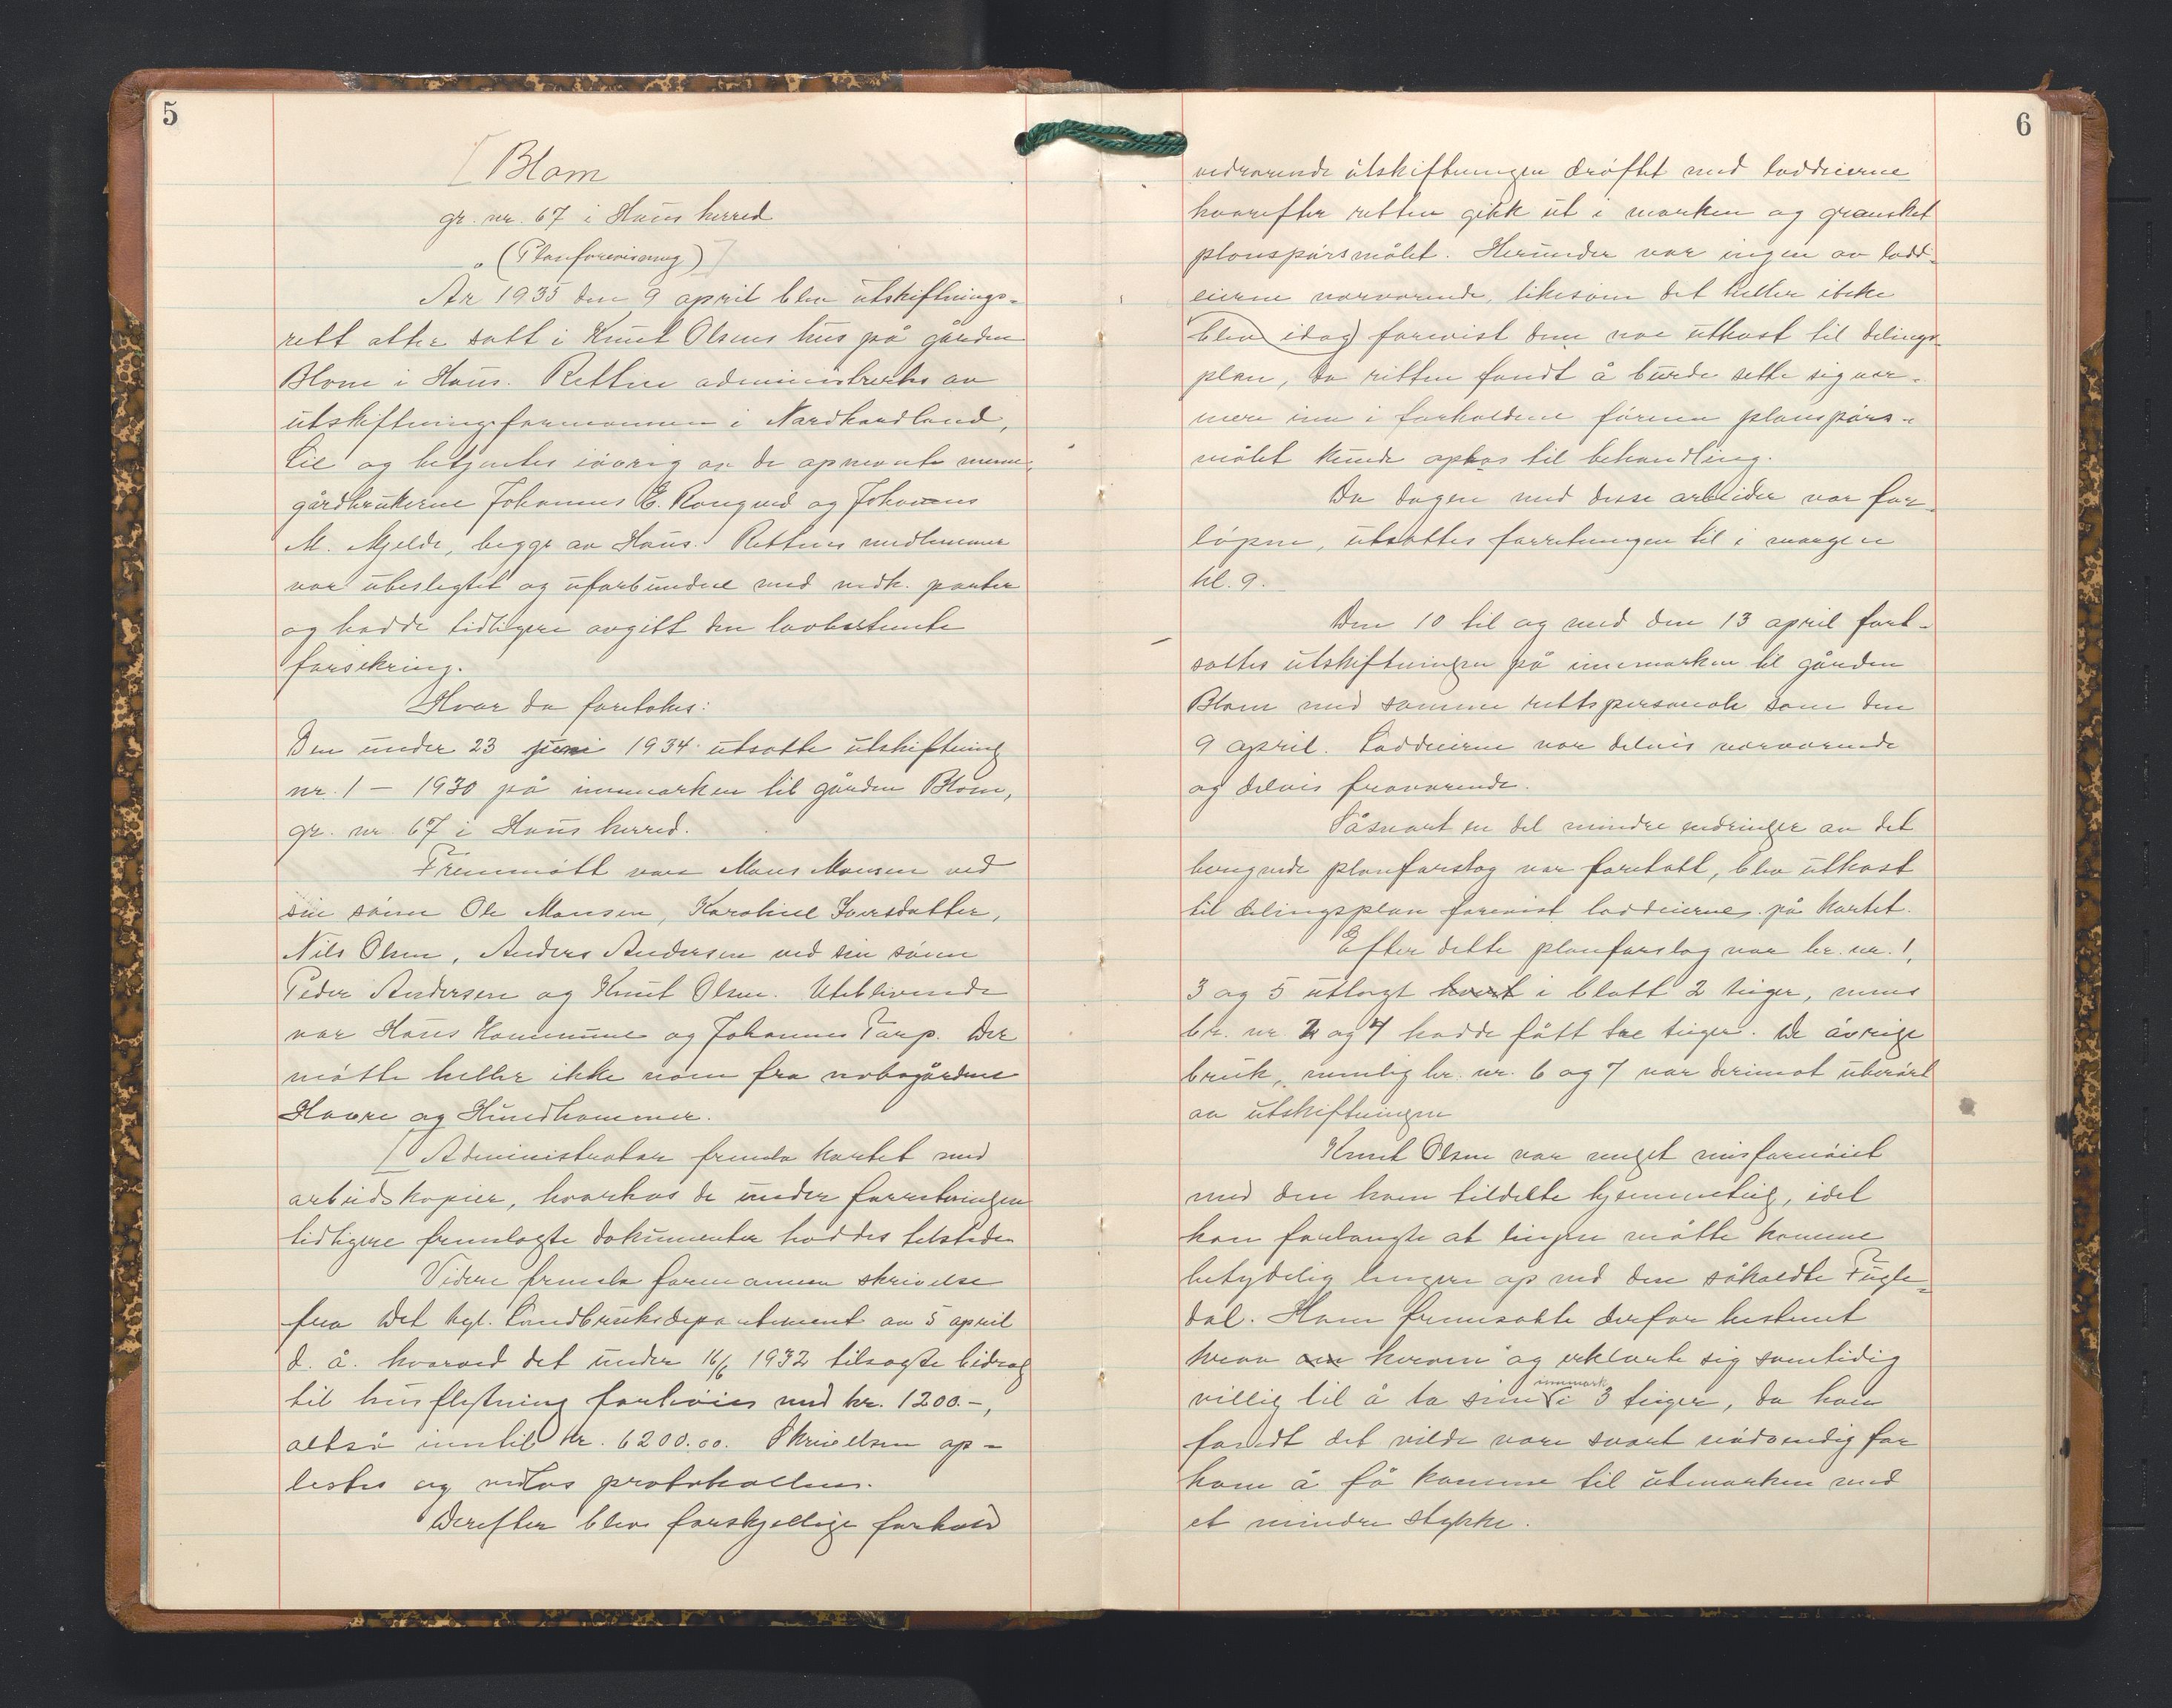 5
[Blom
gr. nr. 67 i Haus herred
(Planforevisning)]
År 1935 den 9 april blev utskiftnings-
rett atter satt i Knut Olsens hus på gården
Blom i Haus. Retten administrertes av
utskiftningsformannen i Nordhordland,
Lie og betjentes iøvrig av de opnevnte menn,
gårdbrukerne Johannes E. Rongved og Johannes
M. Mjelde, begge av Haus. Rettens medlemmer
var ubeslegtet og uforbundne med vedk. parter
og hadde tidligere avgitt den lovbestemte
forsikring.
Hvor da foretokes:
Den under 23 juni 1934 utsatte utskiftning
nr. 1 – 1930 på innmarken til gården Blom,
gr. nr. 67 i Haus herred.
Fremmøtt var Mons Monsen ved
sin sønn Ole Monsen, Karoline Iversdatter,
Nils Olsen, Anders Andersen ved sin sønn
Peder Andersen og Knut Olsen. Uteblivende
var Haus kommune og Johannes Tarp. Der
møtte heller ikke noen fra nabogårdene
Havre og Hundhammer.
[Administrator fremla kartet med
arbeidskopier, hvorhos de under forretningen
tidligere fremlagte dokumenter haddes tilstede.
Videre fremla formannen skrivelse
fra Det kgl. Landbruksdepartement av 5 april
d. å. hvorved det under 16/6 1932 tilsagte bidrag
til husflytning forhøies med kr. 1200.-,
altså inntil kr. 6200.00. Skrivelsen op-
lestes og vedlas protokollen.
Derefter blev forskjellige forhold
6
vedrørende utskiftningen drøftet med loddeierne
hvorefter retten gikk ut i marken og gransket
planspørsmålet. Herunder var ingen av lodd-
eierne nærværende, likesom det heller ikke
blev idag forevist dem noe utkast til delings-
plan, da retten fandt å burde sette sig nær-
mere inn i forholdene førenn planspørs-
målet kunde optas til behandling.
Da dagen med disse arbeider var for-
løpen, utsattes forretningen til i morgen
kl. 9.
Den 10 til og med den 13 april fort-
sattes utskiftningen på innmarken til gården
Blom med samme rettspersonale som den
9 april. Loddeierne var delvis nærværende
og delvis fraværende.
Såsnart en del mindre endringer av det
longende planforslag var foretatt, blev utkast
til delingsplan forevist loddeierne på kartet.
Efter dette planforslag var br. nr. 1,
3 og 5 utlagt hvert i blott 2 teiger, mens
br. nr. 2 og 4 hadde fått tre teiger. De øvrige
bruk, nemlig br. nr. 6 og 7 var derimot uberørt
av utskiftningen
Knut Olsen var meget misfornøiet
med den ham tildelte hjemmeteig, idet
han forlangte at teigen måtte komme
betydelig lengere op ved den såkaldte Fugle-
dal. Han fremsatte derfor bestemt
krav om herom og erklærte sig samtidig
villig til å ta sin innmark i 3 teiger, da han
fandt det vilde være svært nødvendig for
ham å få komme til utmarken med
et mindre stykke.